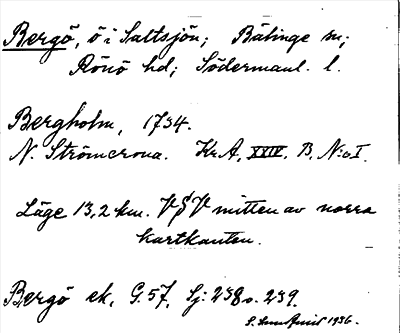 Bergö, ö i Saltsjön; Bälinge sn;
Rönö hd; Södermanl. l.
Bergholm, 1734.
N. Strömcrona. Kr.A. XXIV. B. N:o I.
Läge 13,2 km. VSV mitten av norra
kartkanten.
Bergö ek. G. 57. Sj: 238 o. 239.
1936.